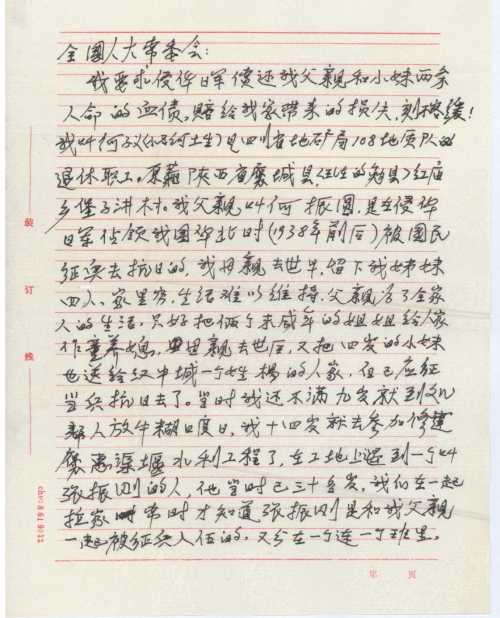 全国人大常委会：
我要求侵华日军偿还我父亲和小妹两条
人命的血债，赔给我家带来的损失，刻不容缓！
我叫何子义(小名何土生)是四川省地矿局108地质队的
退休职工。原籍陕西省褒城县(现在的勉县)红庙
乡堡子讲村。我父亲叫何振国，是在侵华
日军侵领我国华北时(1938年前后)被国民
征兵去抗日的，我母亲去世早，留下我姊妹
四人、家里穷，生活难以维持，父亲为了全家
人的生活，只好把俩个未成年的姐姐给人家
作童养媳，母亲去世后，又把四岁的小妹
也送给汉中城一个姓杨的人家，但己应征
当兵抗日去了。当时我还不满九岁就到
人放牛糊口度日，我十四岁就去参加修建
褒惠渠堰水利工程了，在工地上遇到一个叫
张振刚的人，他当时已三十多岁，我们在一起
拉家常时才知道张振刚是和我父亲
一起被征兵入伍的，又分在一个连一个班里。
装
订
线
第 页